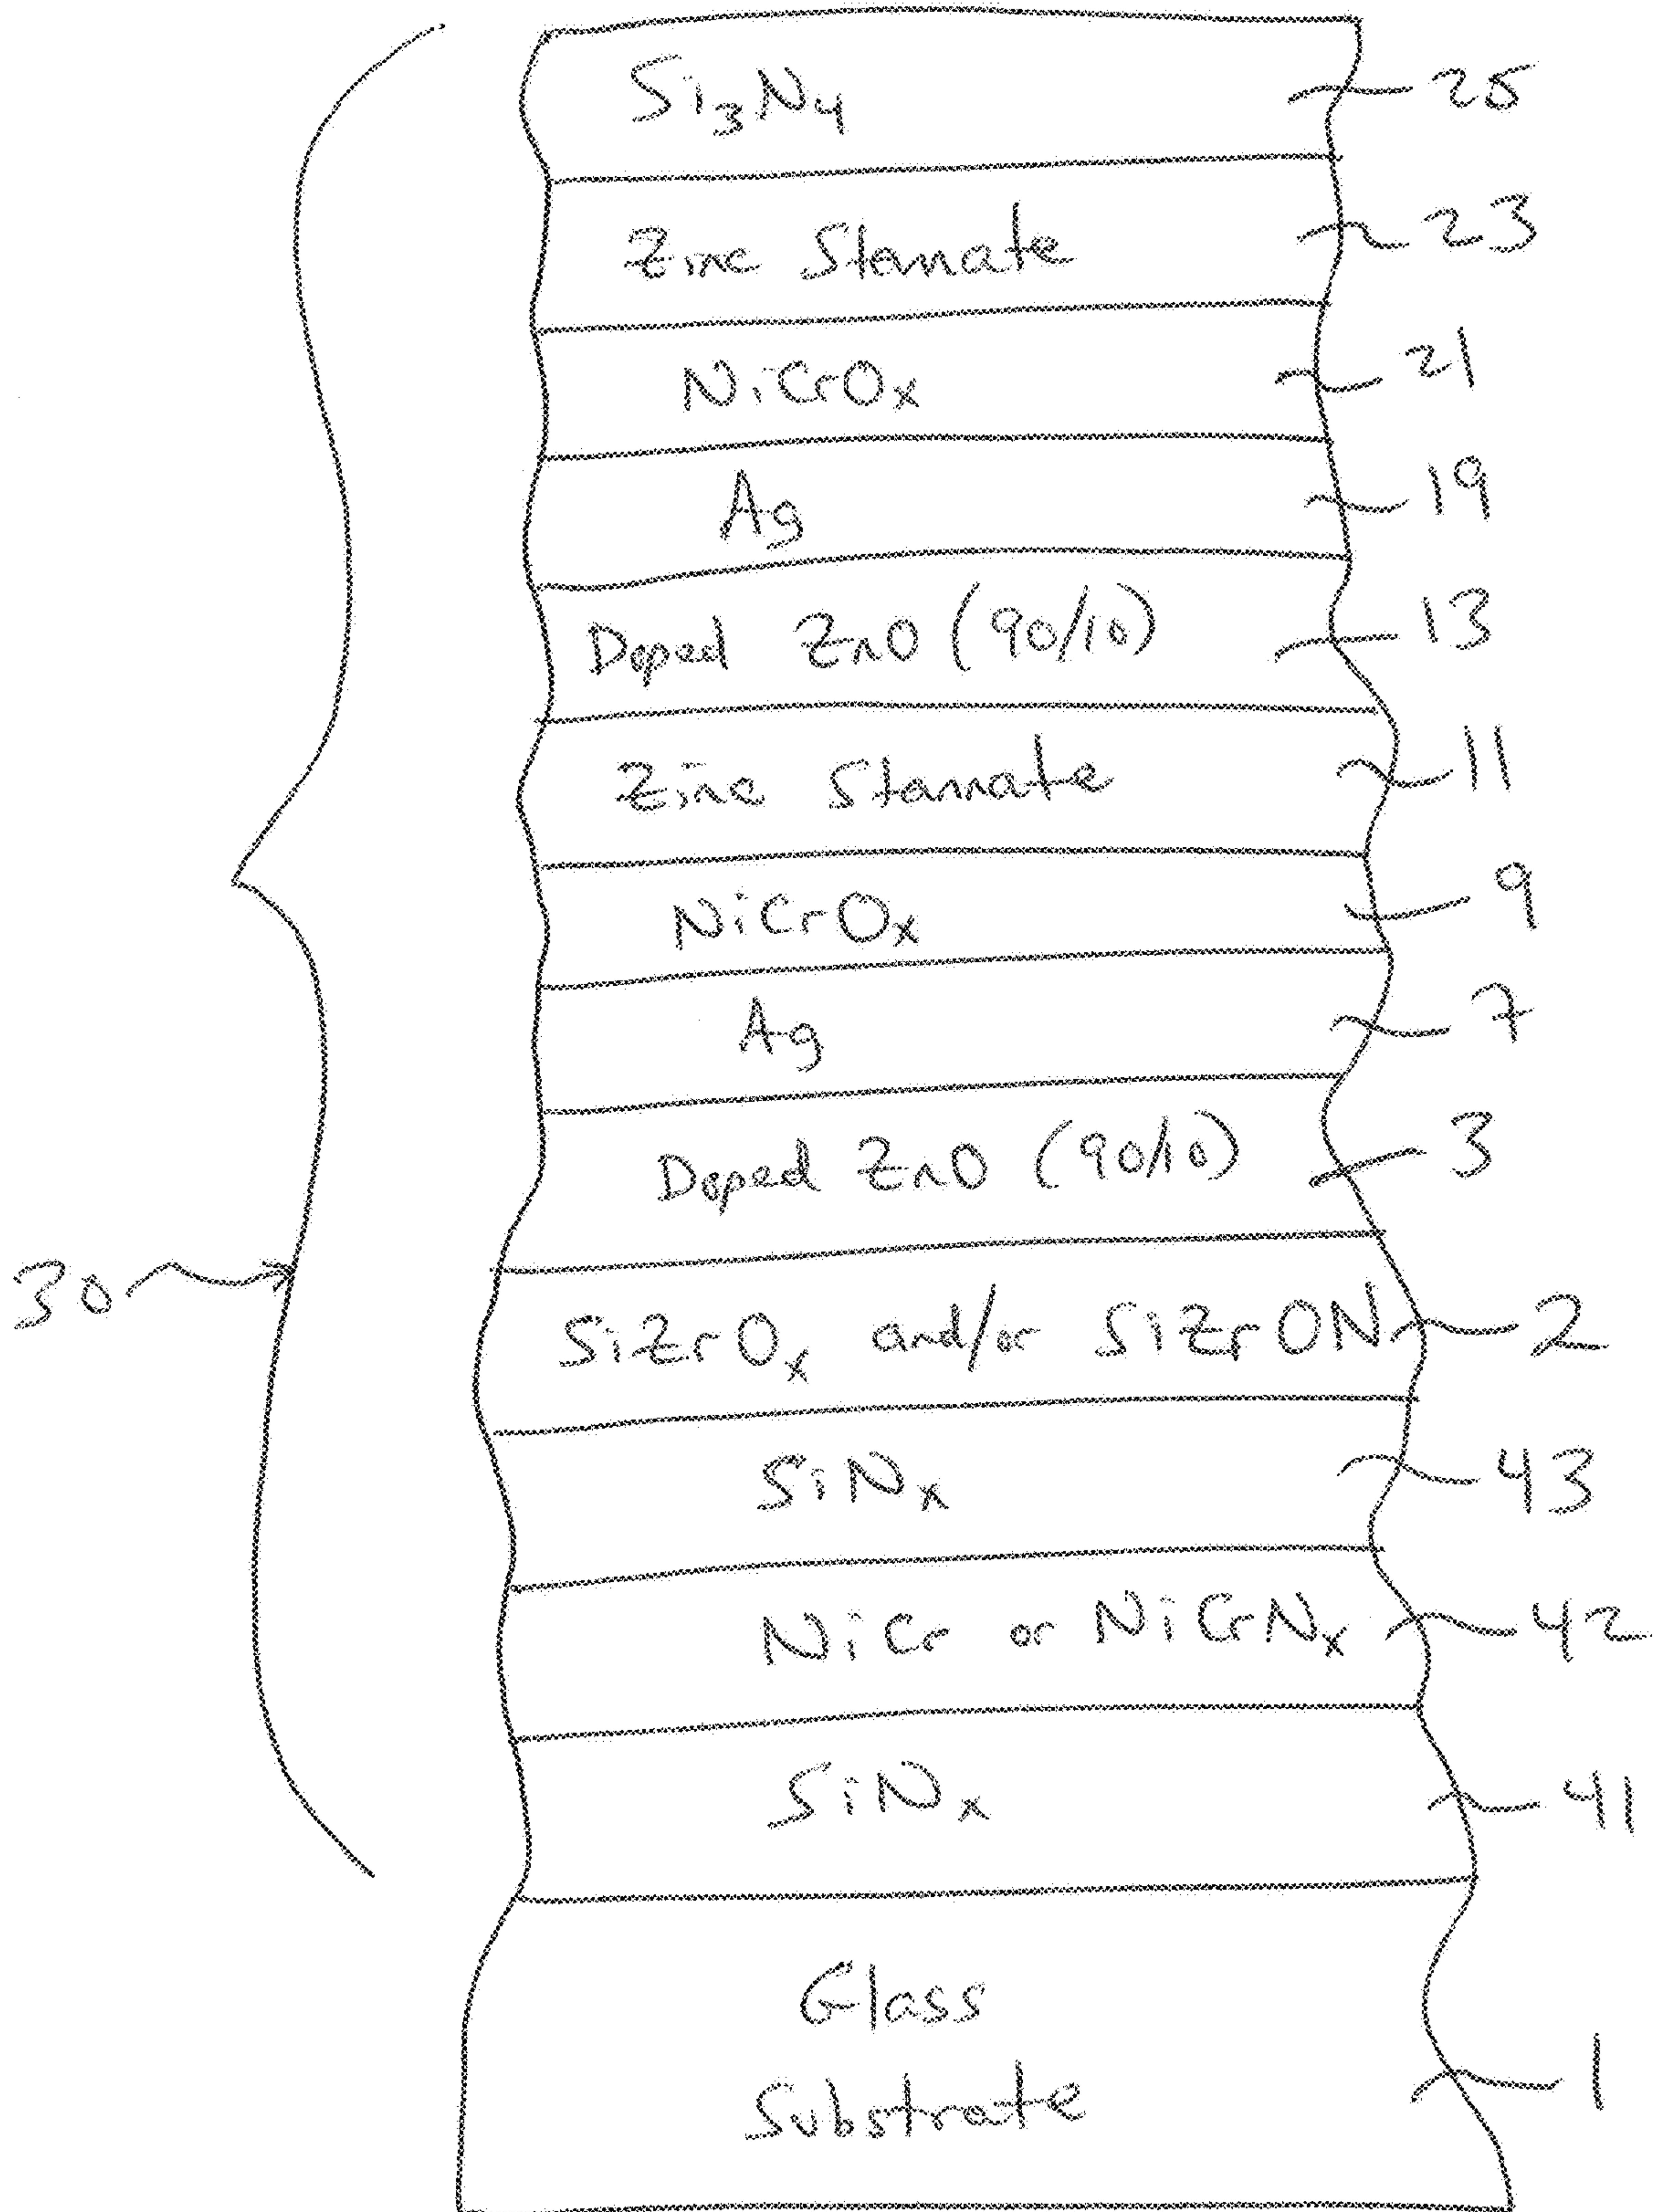 Si3N4 25
Zinc Stannate 23
NiCrOx 21
Ag 19
Doped ZnO (90/10) 13
Zinc Stannate 11
NiCrOx 9
Ag 7
Doped ZnO (90/10) 3
30
SiZrOx and/or SiZrON 2
SiNx 43
NiCr or NiCrNx 42
SiNx 41
Glass
Substrate 1